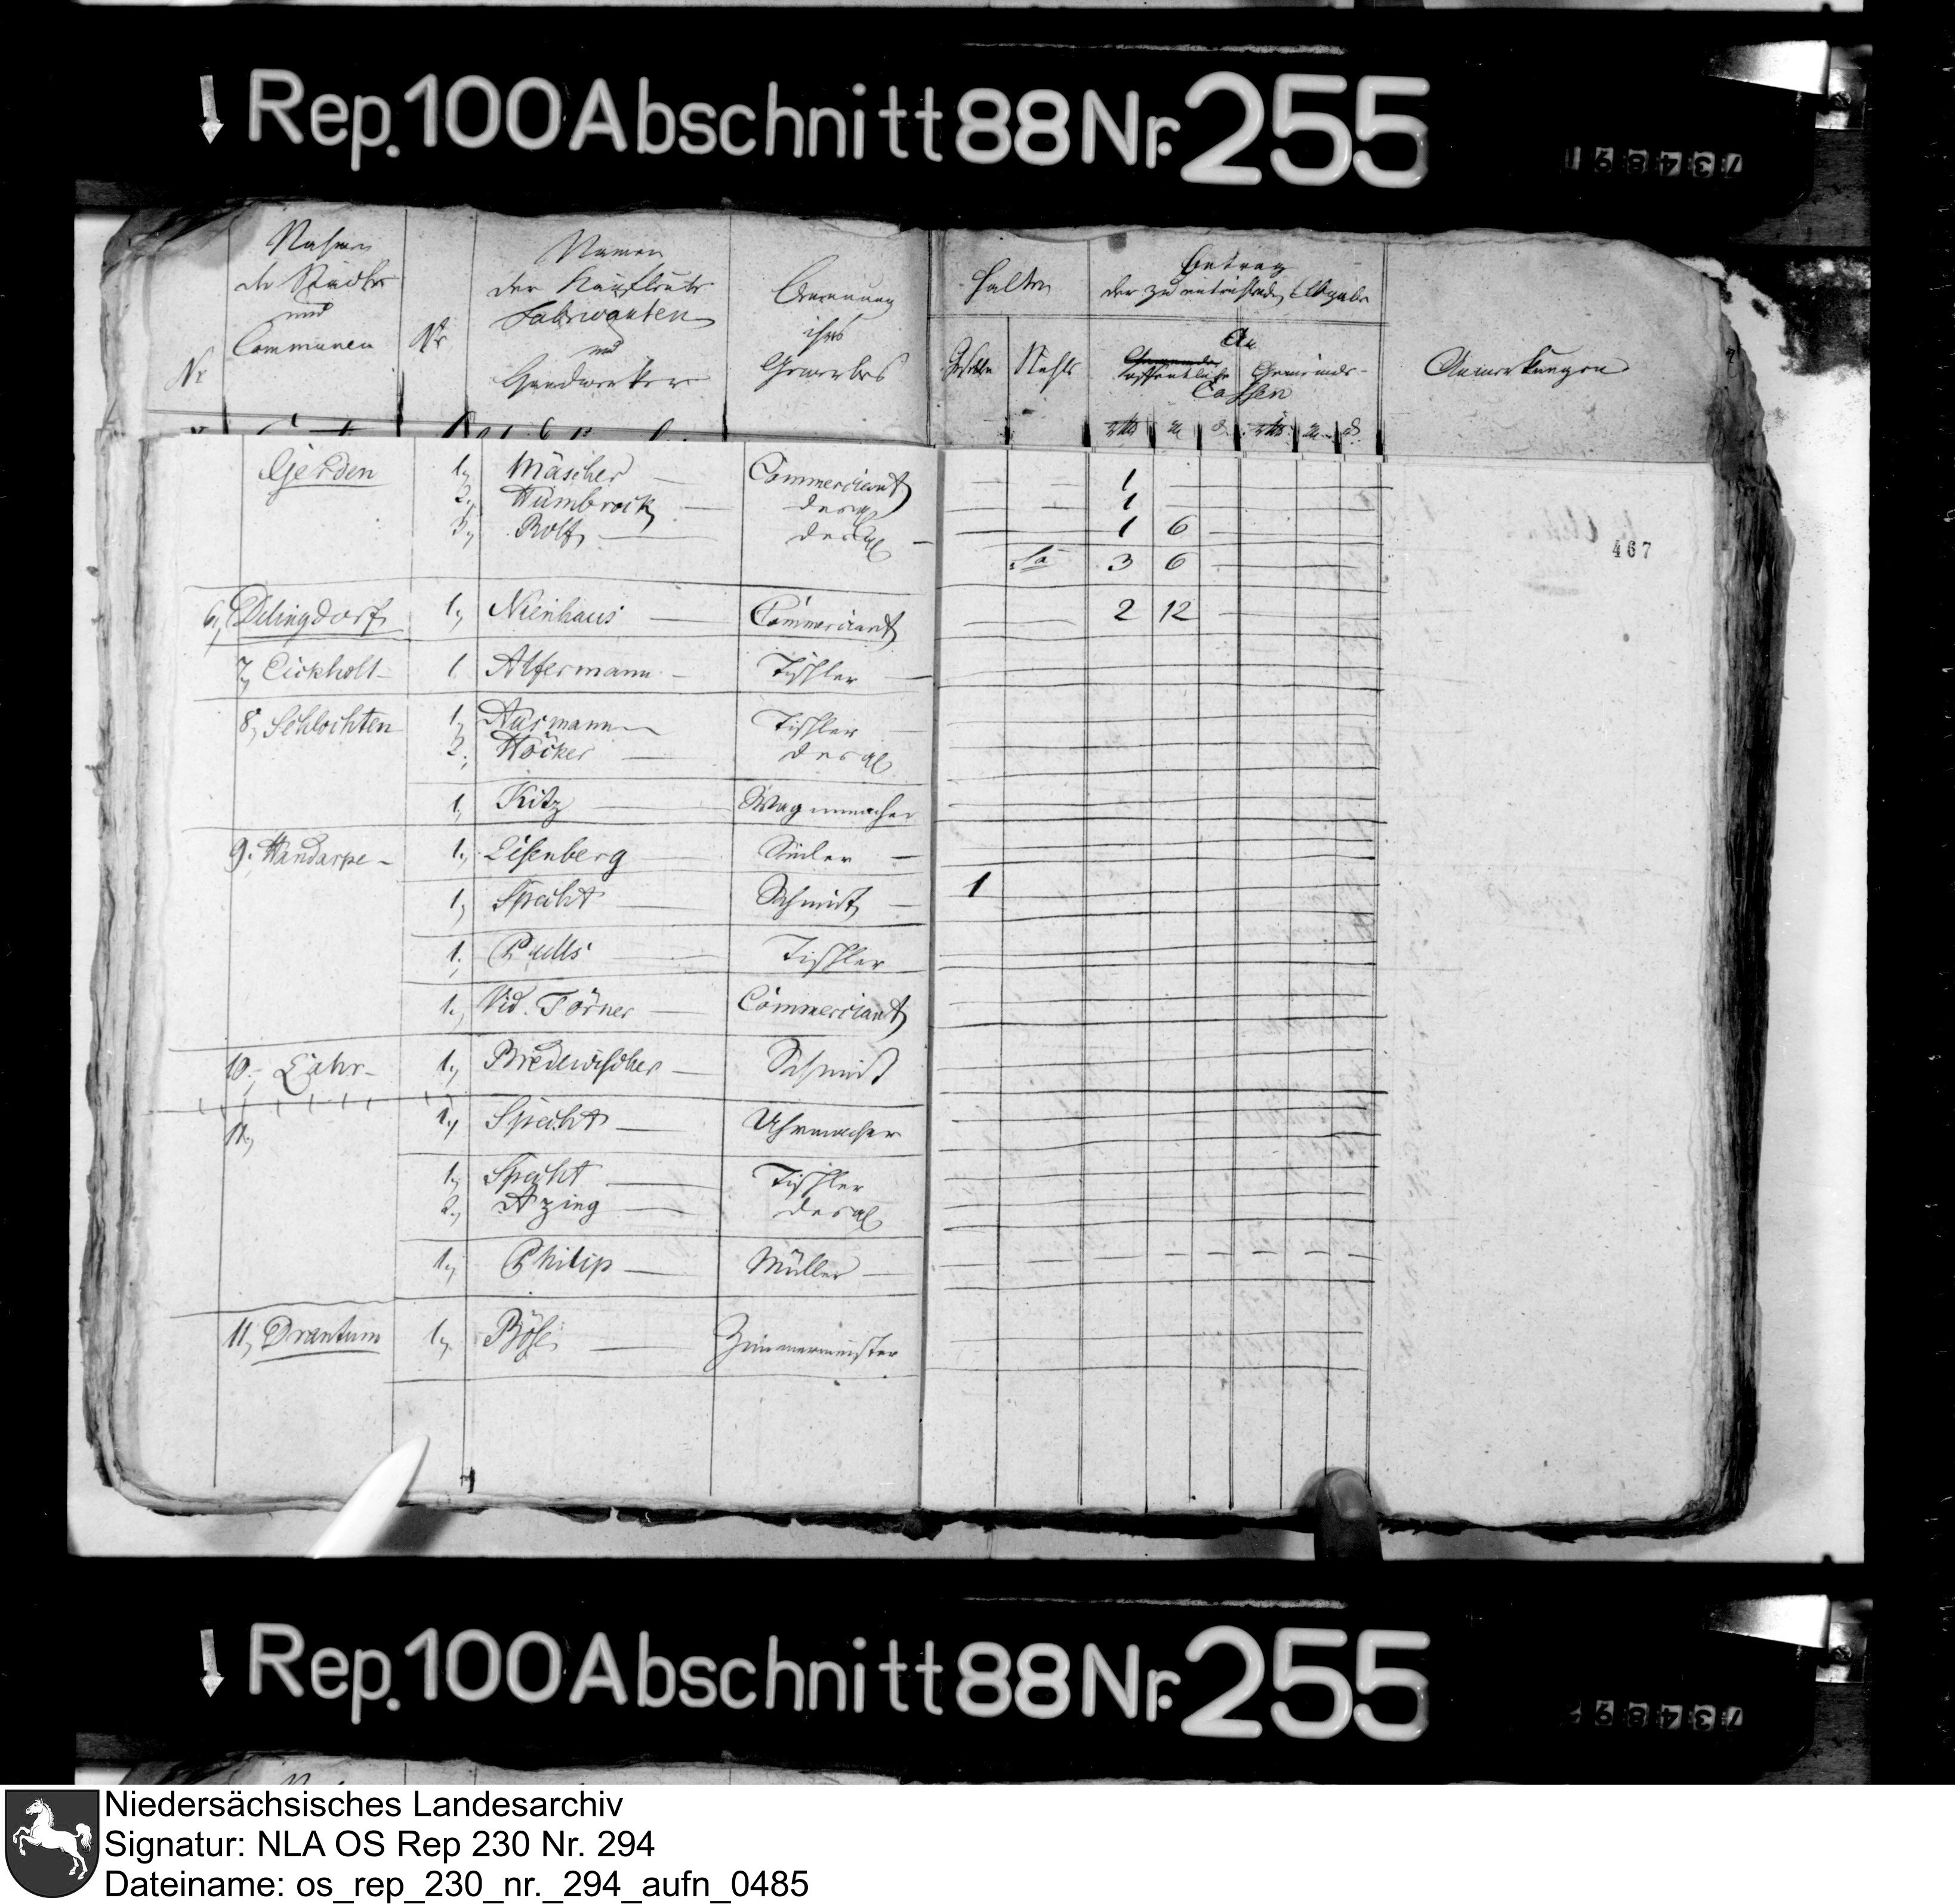 Rep. 100 Abschnitt 88 Nr. 255
Nr
Nahmen
der Städte
und
Communen
Nr
Namen
der Kaufleute
Fabricanten
und
Handwerker
Benennung
ihres
Gewerbes
Halten
Gesellen
Betrag
der zu entrichtenden Abgabe
An
öffentliche
Gemeinde-
Cassen
Anmerkungen
Gerden 1, Mäscher Commerciant 1
2, Hümbrock desgl 1
3, Rolf desgl 1 6
Sa 3 6
467
6, Dilingdorf 1, Nienhaus Commerciant 2 12
7, Eickholt 1 Altermann Tischler
8, Schlochten 1, Ausmann Tischler
2, Höcker desgl
1, Kitz Wagenmacher
9, Handarpe 1, Eisenberg
1, Specht Schmidt 1
1, Tischler
1, Vid. Törner Commerciant
10, Lahr 1, Bredewischer Schmidt
11, 1, Specht Uhrmacher
1, Specht Tischler
2, desgl
1, Philip Müller
11, Drantum 1, Böse Zimmermeister
Rep. 100 Abschnitt 88 Nr. 255
Niedersächsisches Landesarchiv
Signatur: NLA OS Rep 230 Nr. 294
Dateiname: os_rep_230_nr._294_aufn_0485